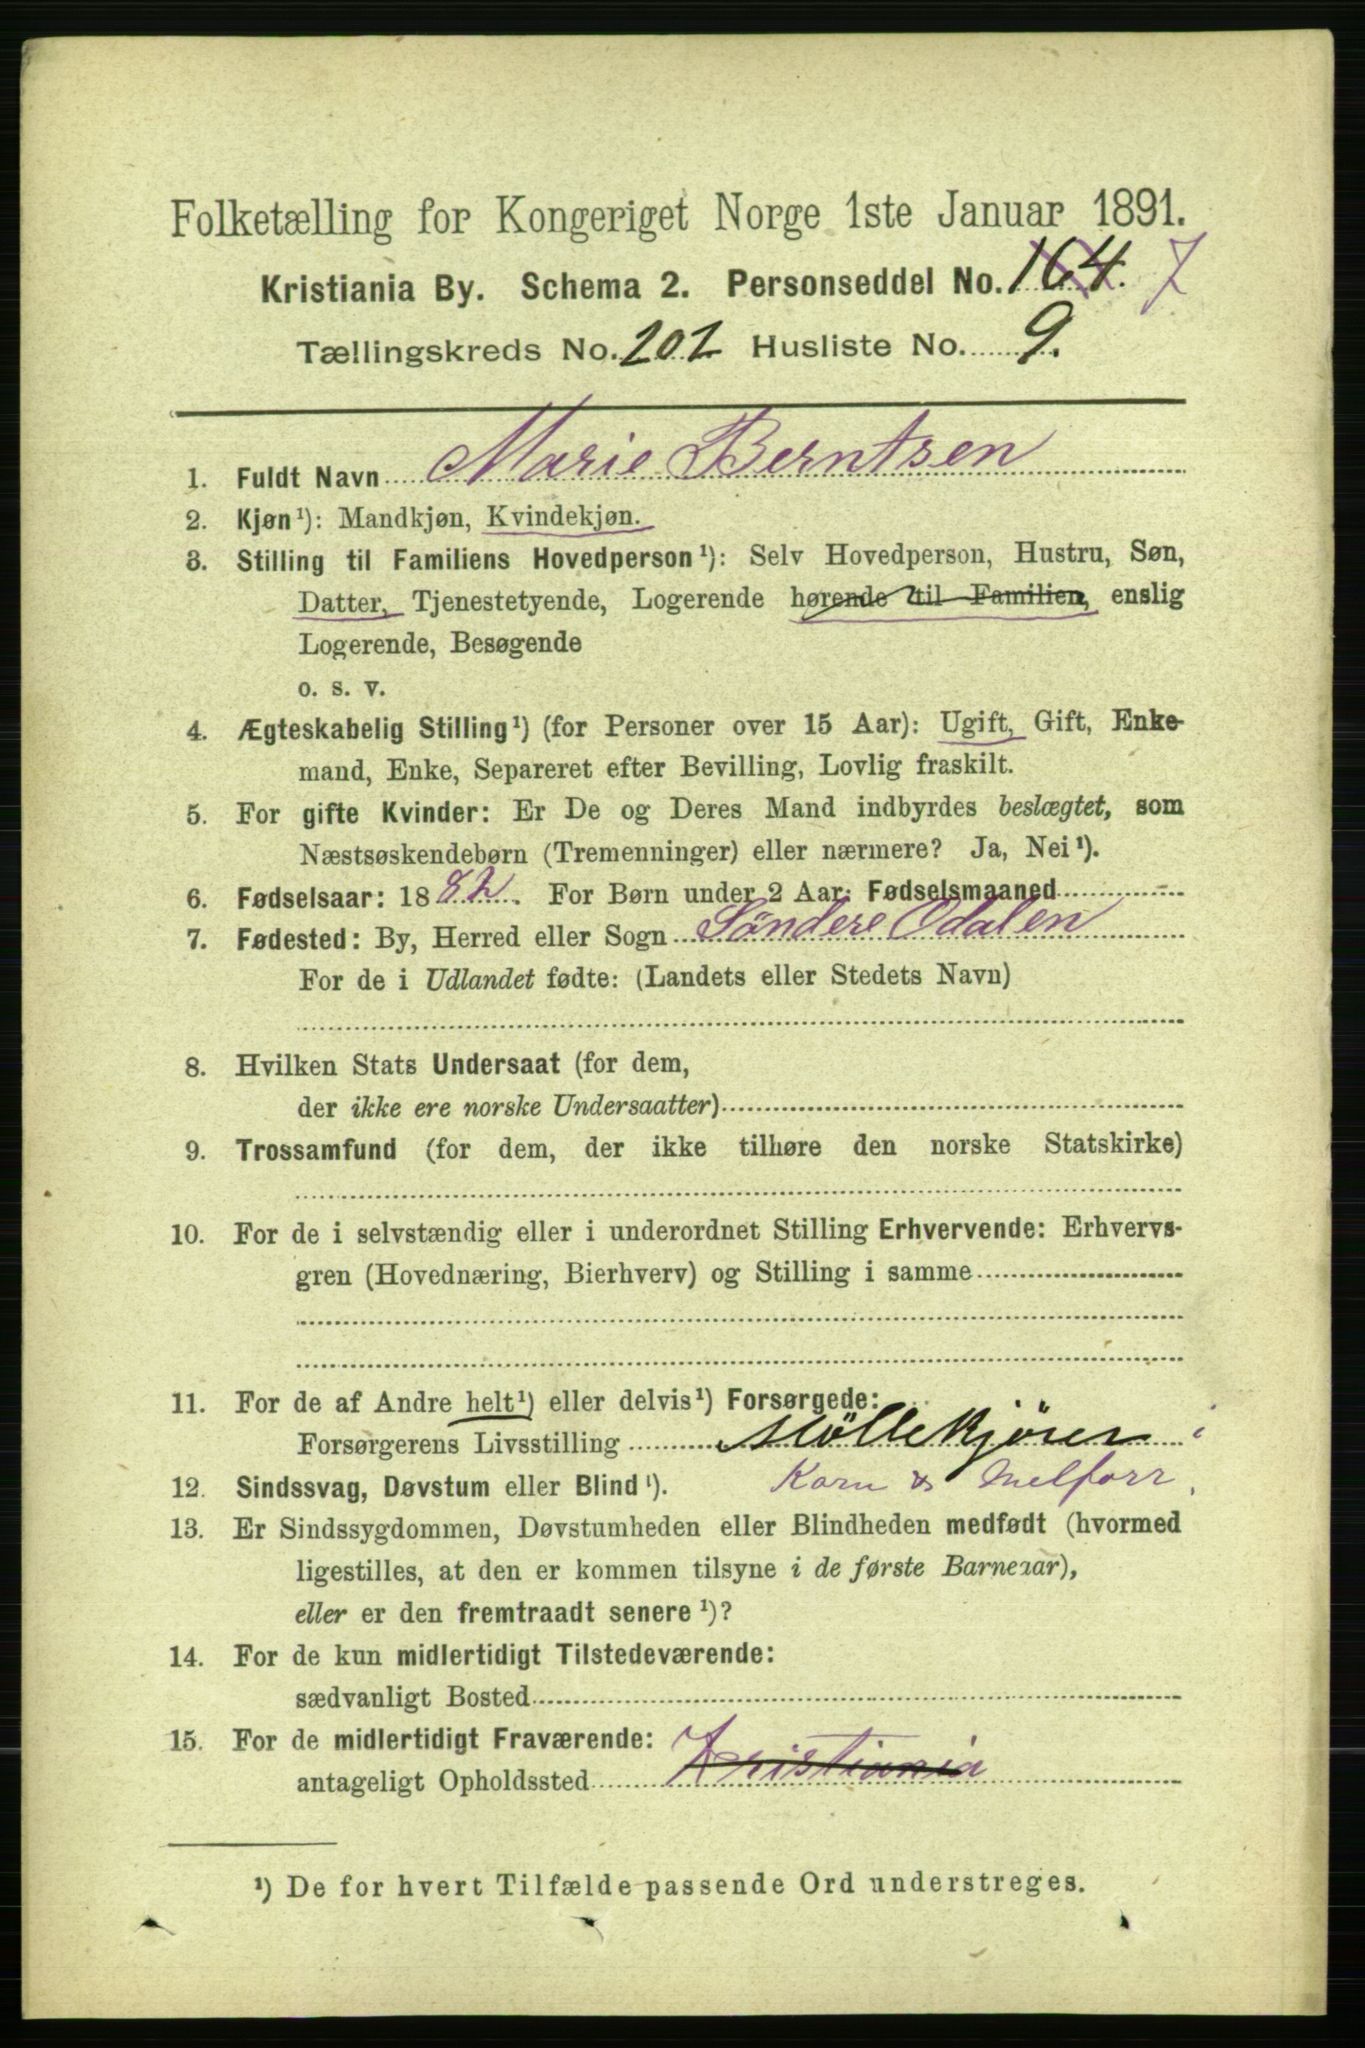 Folketælling for Kongeriget Norge 1ste Januar 1891.
Kristiania By. Schema 2. Personseddel No. 164. 7
Tællingskreds No. 202 Husliste No. 9.
1. Fuldt Navn Marie Berntsen
2. Kjøn¹): Mandkjøn, Kvindekjøn.
3. Stilling til Familiens Hovedperson¹): Selv Hovedperson, Hustru, Søn,
Datter, Tjenestetyende, Logerende hørende til Familien, enslig
Logerende, Besøgende
o. s. v.
4. Ægteskabelig Stilling¹) (for Personer over 15 Aar): Ugift, Gift, Enke-
mand, Enke, Separeret efter Bevilling, Lovlig fraskilt.
5. For gifte Kvinder: Er De og Deres Mand indbyrdes beslægtet, som
Næstsøskendebørn (Tremenninger) eller nærmere? Ja, Nei¹).
6. Fødselsaar: 1882. For Børn under 2 Aar: Fødselsmaaned
7. Fødested: By, Herred eller Sogn Søndere Odalen
For de i Udlandet fødte: (Landets eller Stedets Navn)
8. Hvilken Stats Undersaat (for dem,
der ikke ere norske Undersaatter)
9. Trossamfund (for dem, der ikke tilhøre den norske Statskirke)
10. For de i selvstændig eller i underordnet Stilling Erhvervende: Erhvervs-
gren (Hovednæring, Bierhverv) og Stilling i samme
11. For de af Andre helt¹) eller delvis¹) Forsørgede:
Forsørgerens Livsstilling Møllekjører i
Korn & Melforr.
12. Sindssvag, Døvstum eller Blind¹).
13. Er Sindssygdommen, Døvstumheden eller Blindheden medfødt (hvormed
ligestilles, at den er kommen tilsyne i de første Barneaar),
eller er den fremtraadt senere¹)?
14. For de kun midlertidigt Tilstedeværende:
sædvanligt Bosted
15. For de midlertidigt Fraværende:
antageligt Opholdssted Kristiania
¹) De for hvert Tilfælde passende Ord understreges.